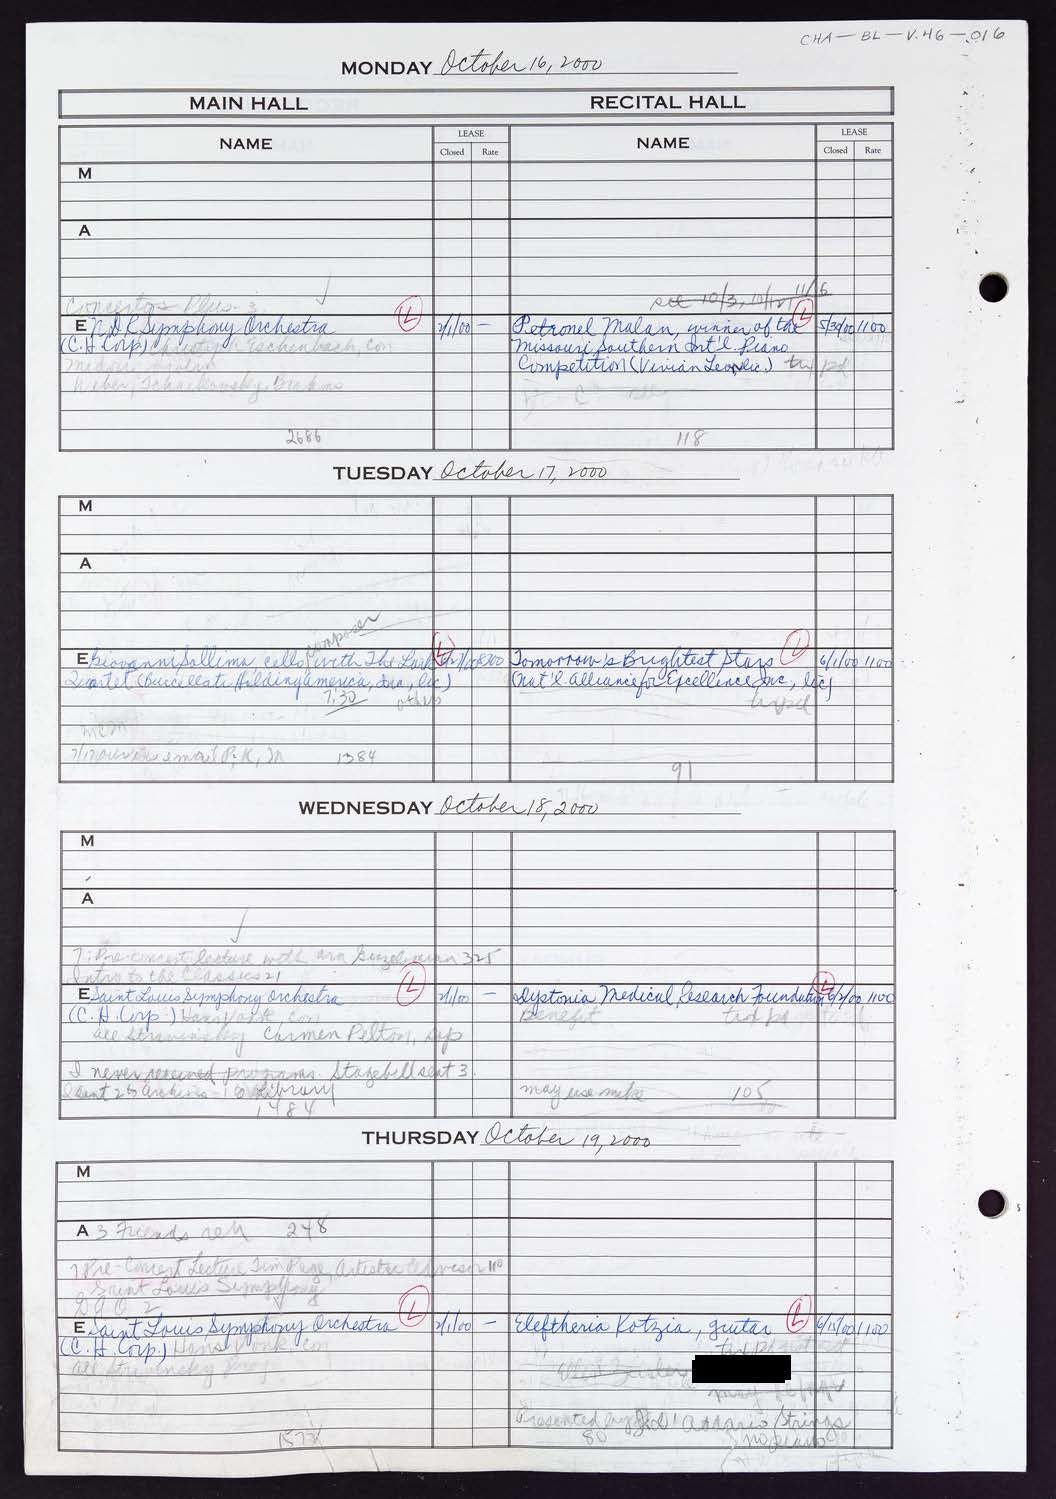 CHA-BL-V.46-016
MONDAY October 16, 2000
MAIN HALL
RECITAL HALL
NAME
LEASE
Closed
Rate
NAME
LEASE
Closed
Rate
M
A
Concertos Plus-3
see 10/3, 10/12, 11/6
E N.D.R. Symphony Orchestra L 2/1/00 -
Petronel Malan, winner of the L 5/30/00 1100
(C.H. Corp) Christoph Eschenbach, con
Missouri Southern Int'l. Piano
Competition (Vivian Leon, lic.)
Weber, Tchaikovsky, Brahms
2686
118
TUESDAY October 17, 2000
M
A
composer
E Giovanni Sollima, cello, with The Lark L
Tomorrow's Brightest Stars L 6/1/00 1100
Quartet (Buccellati Holding America, Inc, lic)
(Nat'l. Alliance for Excellence, Inc., lic)
7:30 others
1384
91
WEDNESDAY October 18, 2000
M
A
7: Pre-concert lecture with Ara Guzelimian 325
Intro to the Classics 21
E Saint Louis Symphony Orchestra L 2/1/00 -
Dystonia Medical Research Foundation L 1100
(C.H. Corp) Hans Vonk, con
Benefit
all Stravinsky Carmen Pelton, sop
I never received programs. Stagebill sent 3.
I sent 2 to Archives - 1 to Library
may use mike 105
1484
THURSDAY October 19, 2000
M
A 3 Friends reh 248
7 Pre-Concert Lecture Tim Page, Artistic Advisor 110
Saint Louis Symphony
Q & A 2
E Saint Louis Symphony Orchestra L 2/1/00 -
Eleftheria Kotzia, guitar L 6/15/00 1100
(C.H. Corp.) Hans Vonk, con
all Stravinsky Prog
Presented by J. D'Addario/Strings
80
no piano
1573